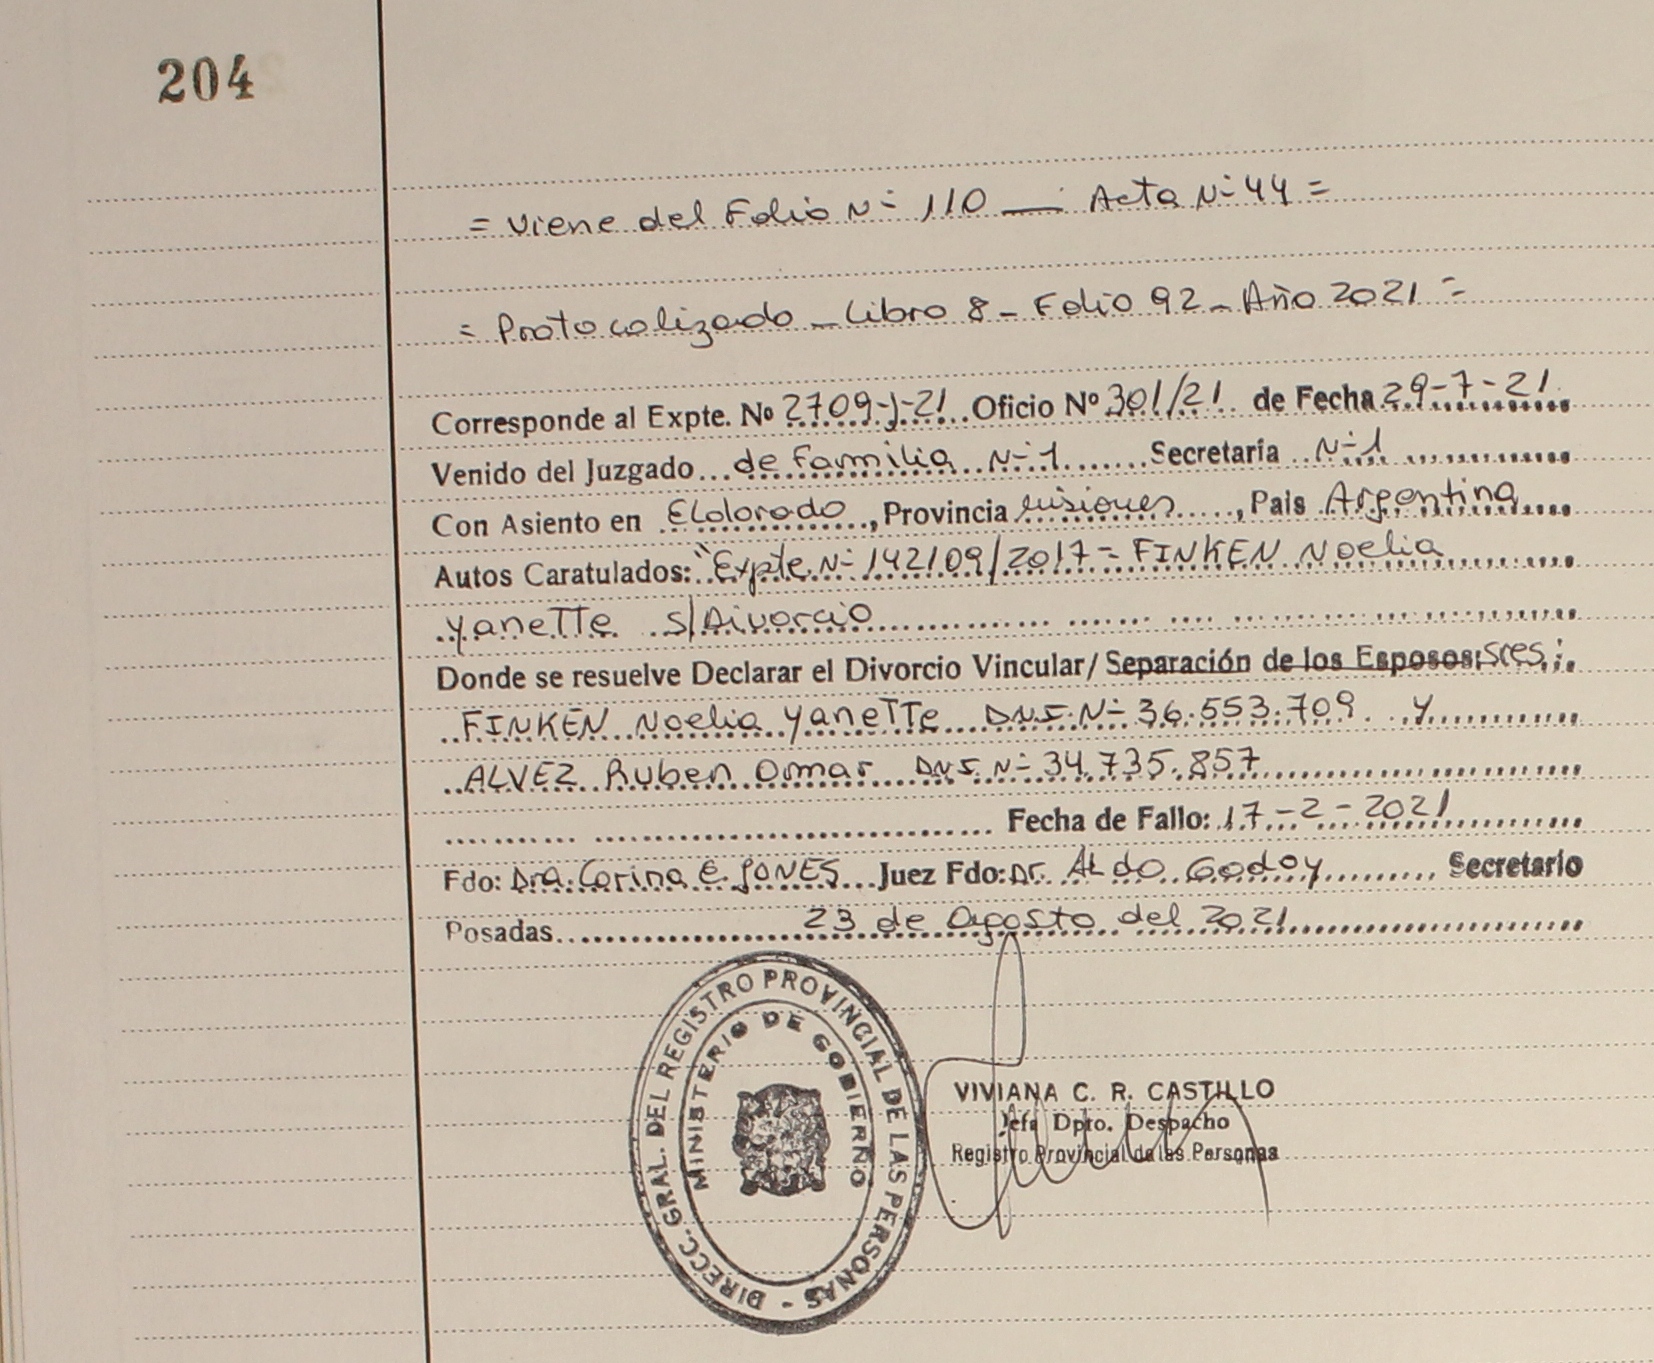 204
= Viene del Folio Nº 110 — Acta Nº 44 =
= Protocolizado - Libro 8 - Folio 92 - Año 2021 =
Corresponde al Expte. Nº 2709-J-21 Oficio Nº 301/21 de Fecha 29-7-21
Venido del Juzgado de Familia Nº 1 Secretaría Nº 1
Con Asiento en Eldorado, Provincia Misiones, Pais Argentina
Autos Caratulados: "Expte. Nº 142109/2017 = FINKEN Noelia
Yanette s/Divorcio
Donde se resuelve Declarar el Divorcio Vincular/ Separación de los Esposos: Sres.:
FINKEN Noelia Yanette D.N.I. Nº 36.553.709 y
ALVEZ Ruben Omar D.N.I. Nº 34.735.857
Fecha de Fallo: 17-2-2021
Fdo: Dra. Corina E. JONES Juez Fdo: Dr. Aldo Godoy Secretario
Posadas 23 de Agosto del 2021
DIRECC. GRAL. DEL REGISTRO PROVINCIAL DE LAS PERSONAS -
MINISTERIO DE GOBIERNO
VIVIANA C. R. CASTILLO
Jefa Dpto. Despacho
Registro Provincial de las Personas